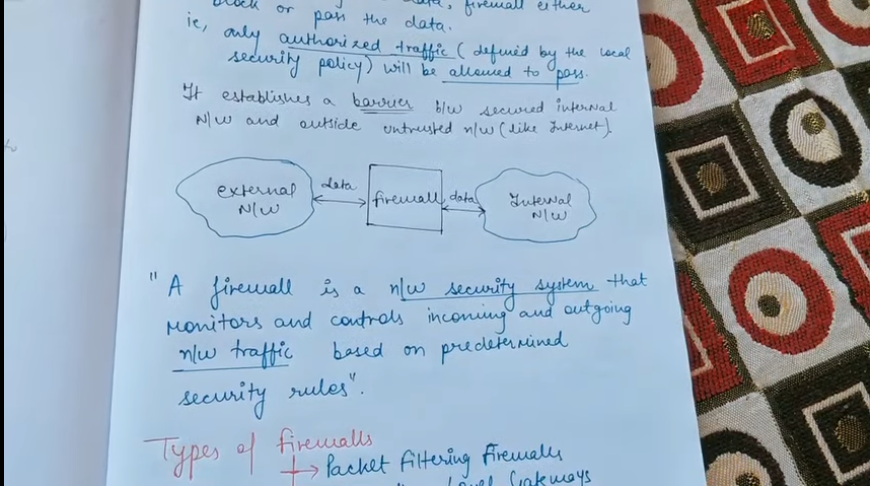 block or pass the data, firewall either
ie, only authorized traffic (defined by the local
security policy) will be allowed to pass.
It establishes a barrier b/w secured internal
N/W and outside untrusted n/w (like Internet).
external
N/W
data
firewall
data
Internal
N/W
"A firewall is a n/w security system that
monitors and controls incoming and outgoing
n/w traffic based on predetermined
security rules".
Types of firewalls
→ Packet filtering Firewalls
Level Gateways